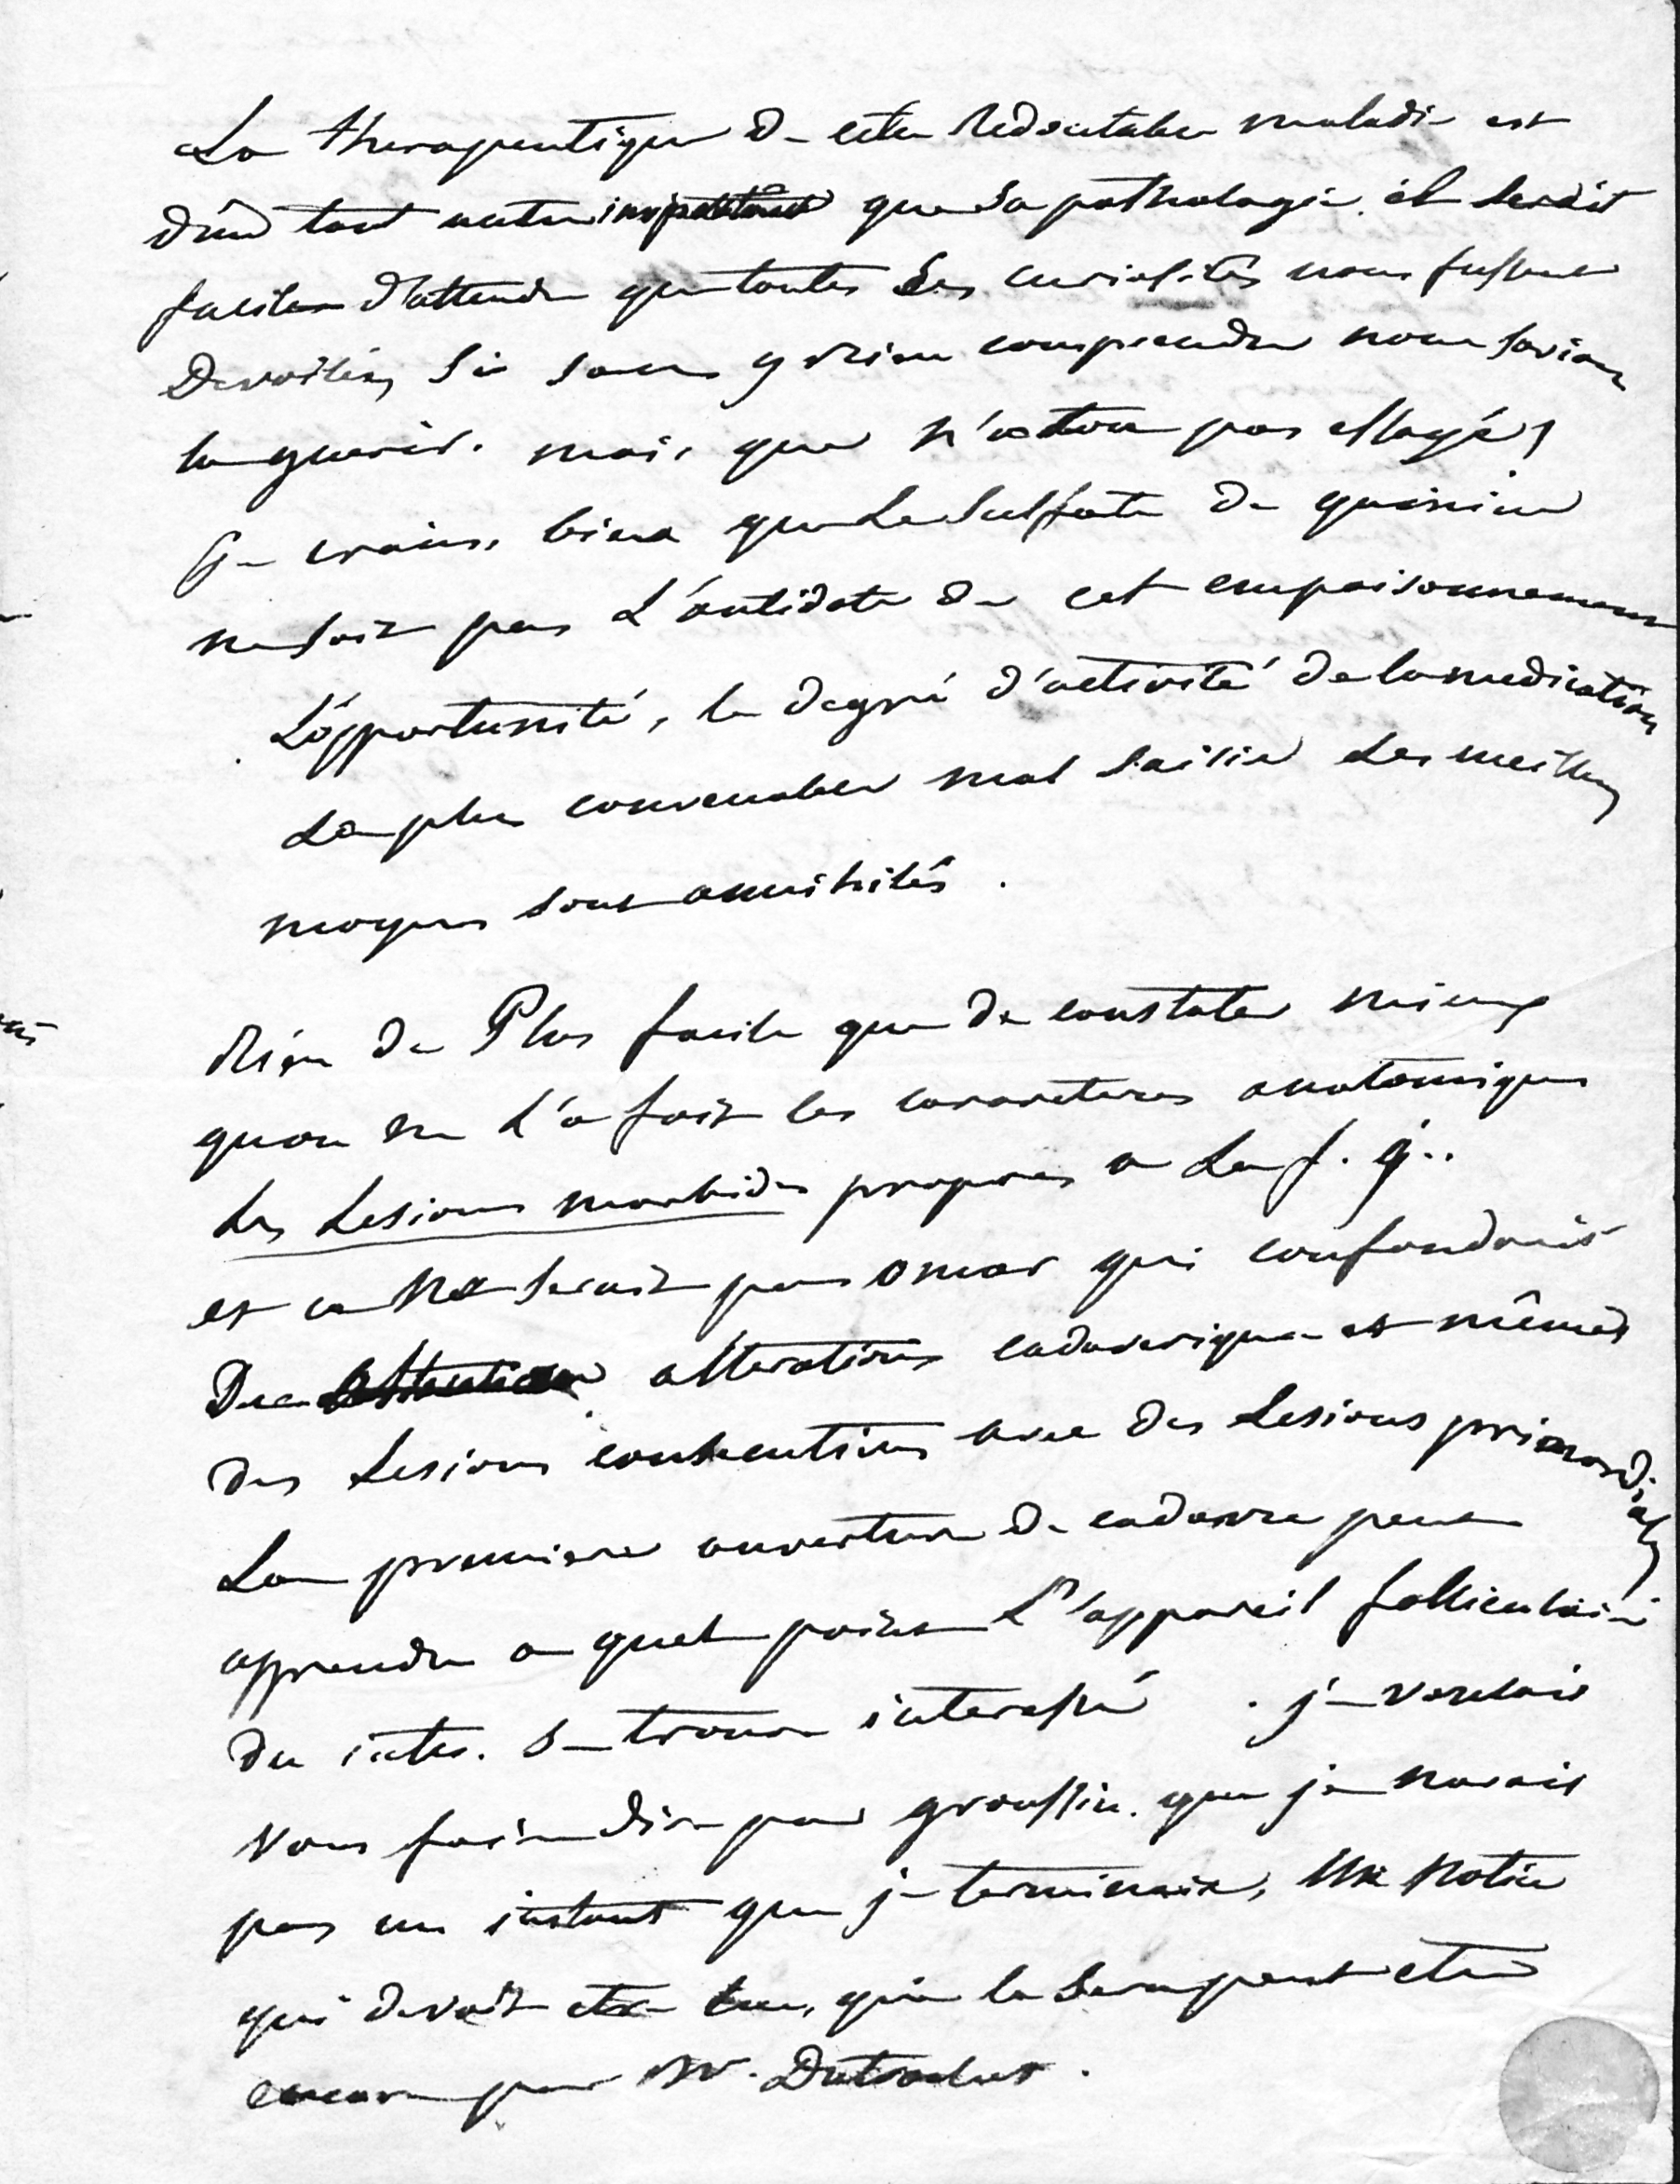 La therapeutique de cette redoutable maladie est
d'un tout autre important que sa pathologie. il serait
facile d'attendre que toutes ses curiosités nous fussent
devoilées, si sans y rien comprendre nous savions
la guerir. mais que n'a-t-on pas essayé!
Je crains bien que le sulfate de quinine
ne soit pas L'antidote de cet empoisonnement
L'opportunité, le degré d'activité de la medication
La plus convenable mal saisie Les meilleurs
moyens sont annihilés.
Rien de Plus facile que de constater mieux
qu'on ne L'a fait les caracteres anatomiques
Les Lesions morbides propres a La f. j..
et ce ne serait pas qui confondrait
Des alterations cadaveriques et mêmes
des Lesions consecutives avec des Lesions primordiales
La premiere ouverture de cadavre peut
apprendre a quel point L'appareil folliculaire
du intes. se trouve interessé. je voulais
vous faire dire par que je n'avais
pas un instant que je terminais, une notice
qui devait etre lue, qui le sera peut etre
encore par Mr.